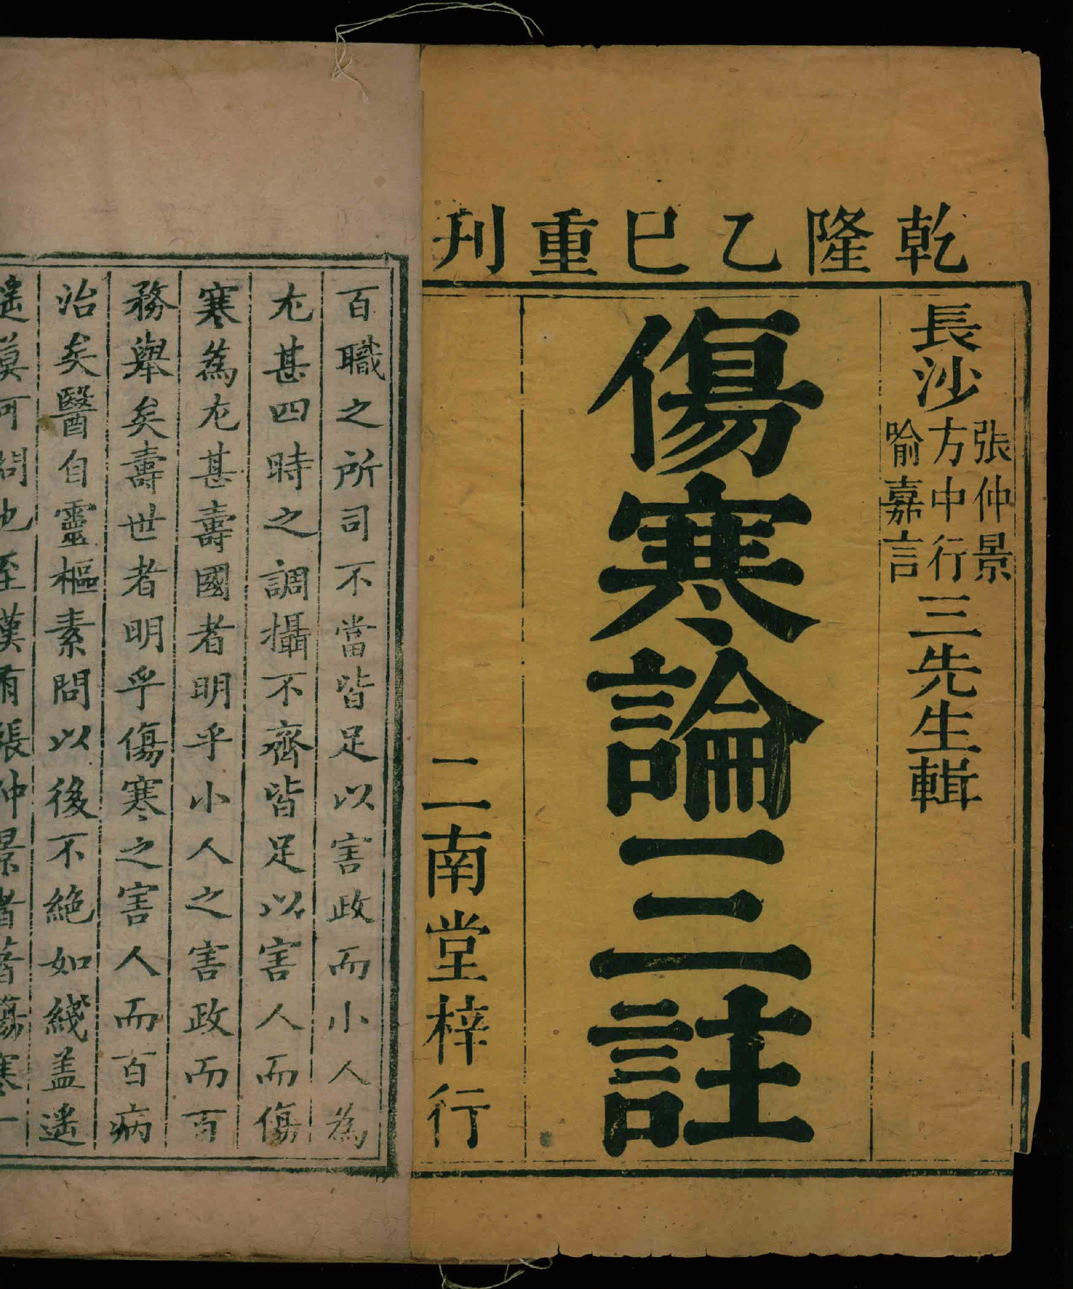 乾隆乙巳重刊
長沙張仲景方中行喻嘉言三先生輯
傷寒論三註
二南堂梓行
百職之所司不當皆足以害政而小人為
尤甚四時之調攝不齊皆足以害人而傷
寒為尤甚壽國者明乎小人之害政而百
務舉矣壽世者明乎傷寒之害人而百病
治矣醫自靈樞素問以後不絕如綫盖遥
遥莫可問也至漢有張仲景者著傷寒一